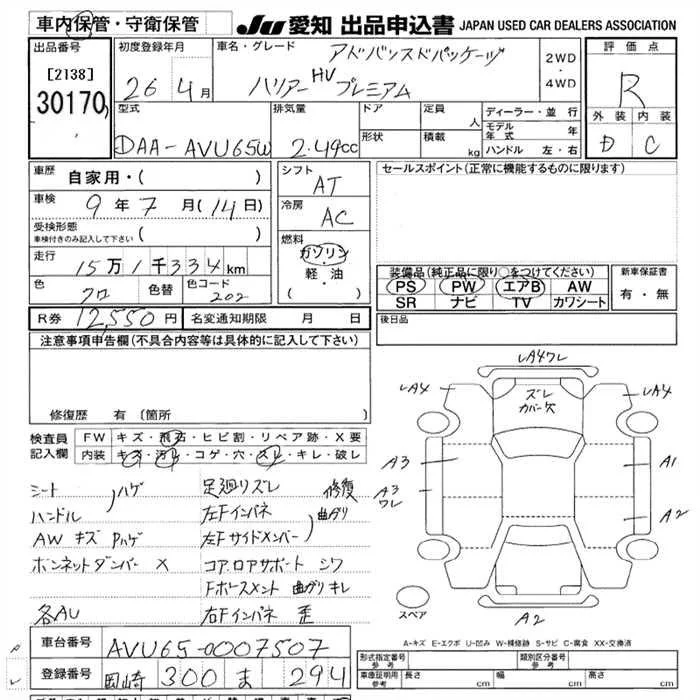 車内保管・守衛保管
JU 愛知 出品申込書 JAPAN USED CAR DEALERS ASSOCIATION
出品番号 初度登録年月 車名・グレード アドバンスドパッケージ 2WD ・ 4WD 評価点
[2138] 30170 26 4月 ハリアー HV プレミアム R
型式 排気量 ドア 定員 人 ディーラー・並行 外装 内装
DAA-AVU65W 2.49cc 形状 積載 kg モデル年式 年 D C
ハンドル 左・右
車歴 自家用・( ) シフト AT セールスポイント(正常に機能するものに限ります)
車検 9年7月(14日) 冷房 AC
受検形態 車検付きのみ記入して下さい ( )
燃料 ガソリン ・ 軽・油 ( )
走行 15万1千334km
装備品(純正品に限り○をつけてください) 新車保証書
色 クロ 色替 色コード 202
PS PW エアB AW 有・無
SR ナビ TV カワシート
R券 12,550円 名変通知期限 月 日 後日品
注意事項申告欄(不具合内容等は具体的に記入して下さい)
修復歴 有 (箇所
検査員記入欄 FW キズ・飛石・ヒビ割・リペア跡・X要
内装 キズ・汚れ・コゲ・穴・スレ・キレ・破レ
シート ハゲ 足廻りズレ 修復
ハンドル 左Fインパネ 曲ガリ
AW キズ Pハゲ 左Fサイドメンバー
ボンネットダンパー X コア.ロアサポート シワ
Fホースメント 曲ガリ キレ
各AU 右Fインパネ 歪
LA4ワレ
LA4 ズレ カバー欠 LA4
A3 A1
A3 ワレ A2
スペア A2
A-キズ E-エクボ U-凹み W-補修跡 S-サビ C-腐食 XX-交換済
車台番号 AVU65-0007507
登録番号 岡崎 300 ま 294
形式指定番号 参考 類別区分番号 参考
車庫証明用 参考 長さ cm 幅 cm 高さ cm